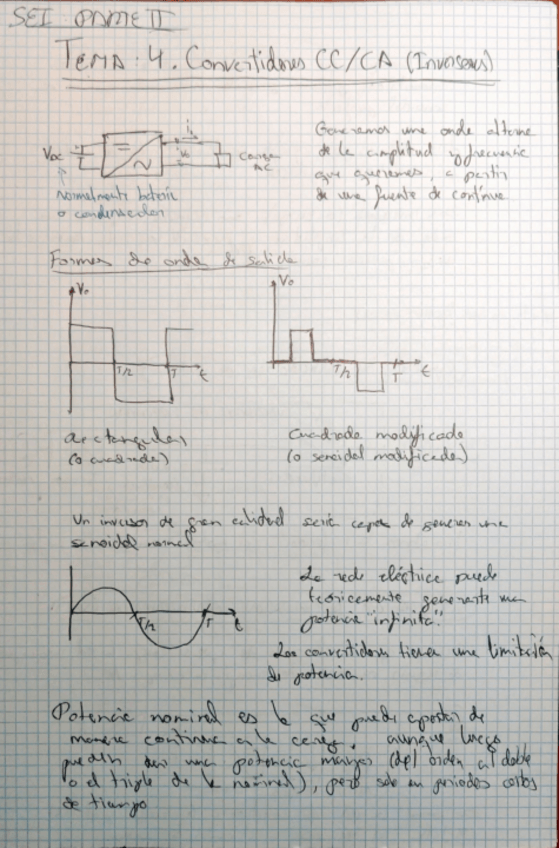 SEI PAME II
TEMA: 4. Convertidores CC/CA (Inversores)
Generamos una onda alterna
de la amplitud y frecuencia
que queremos, a partir
de una fuente de continua
VDC
io
Vo
Carga
AC
Normalmente batería
o condensador
Formas de onda de salida
Vo
T/2
T
t
Vo
T/2
T
t
Rectangular
(o cuadrada)
Cuadrada modificada
(o senoidal modificada)
Un inversor de gran calidad sería capaz de generar una
senoidal normal
T/2
T
t
La red eléctrica puede
teóricamente generarte una
potencia "infinita".
Los convertidores tienen una limitación
de potencia.
Potencia nominal es la que puede aportar de
manera continua a la carga, aunque luego
pueden dar una potencia mayor (del orden al doble
o el triple de la nominal), pero solo en periodos cortos
de tiempo